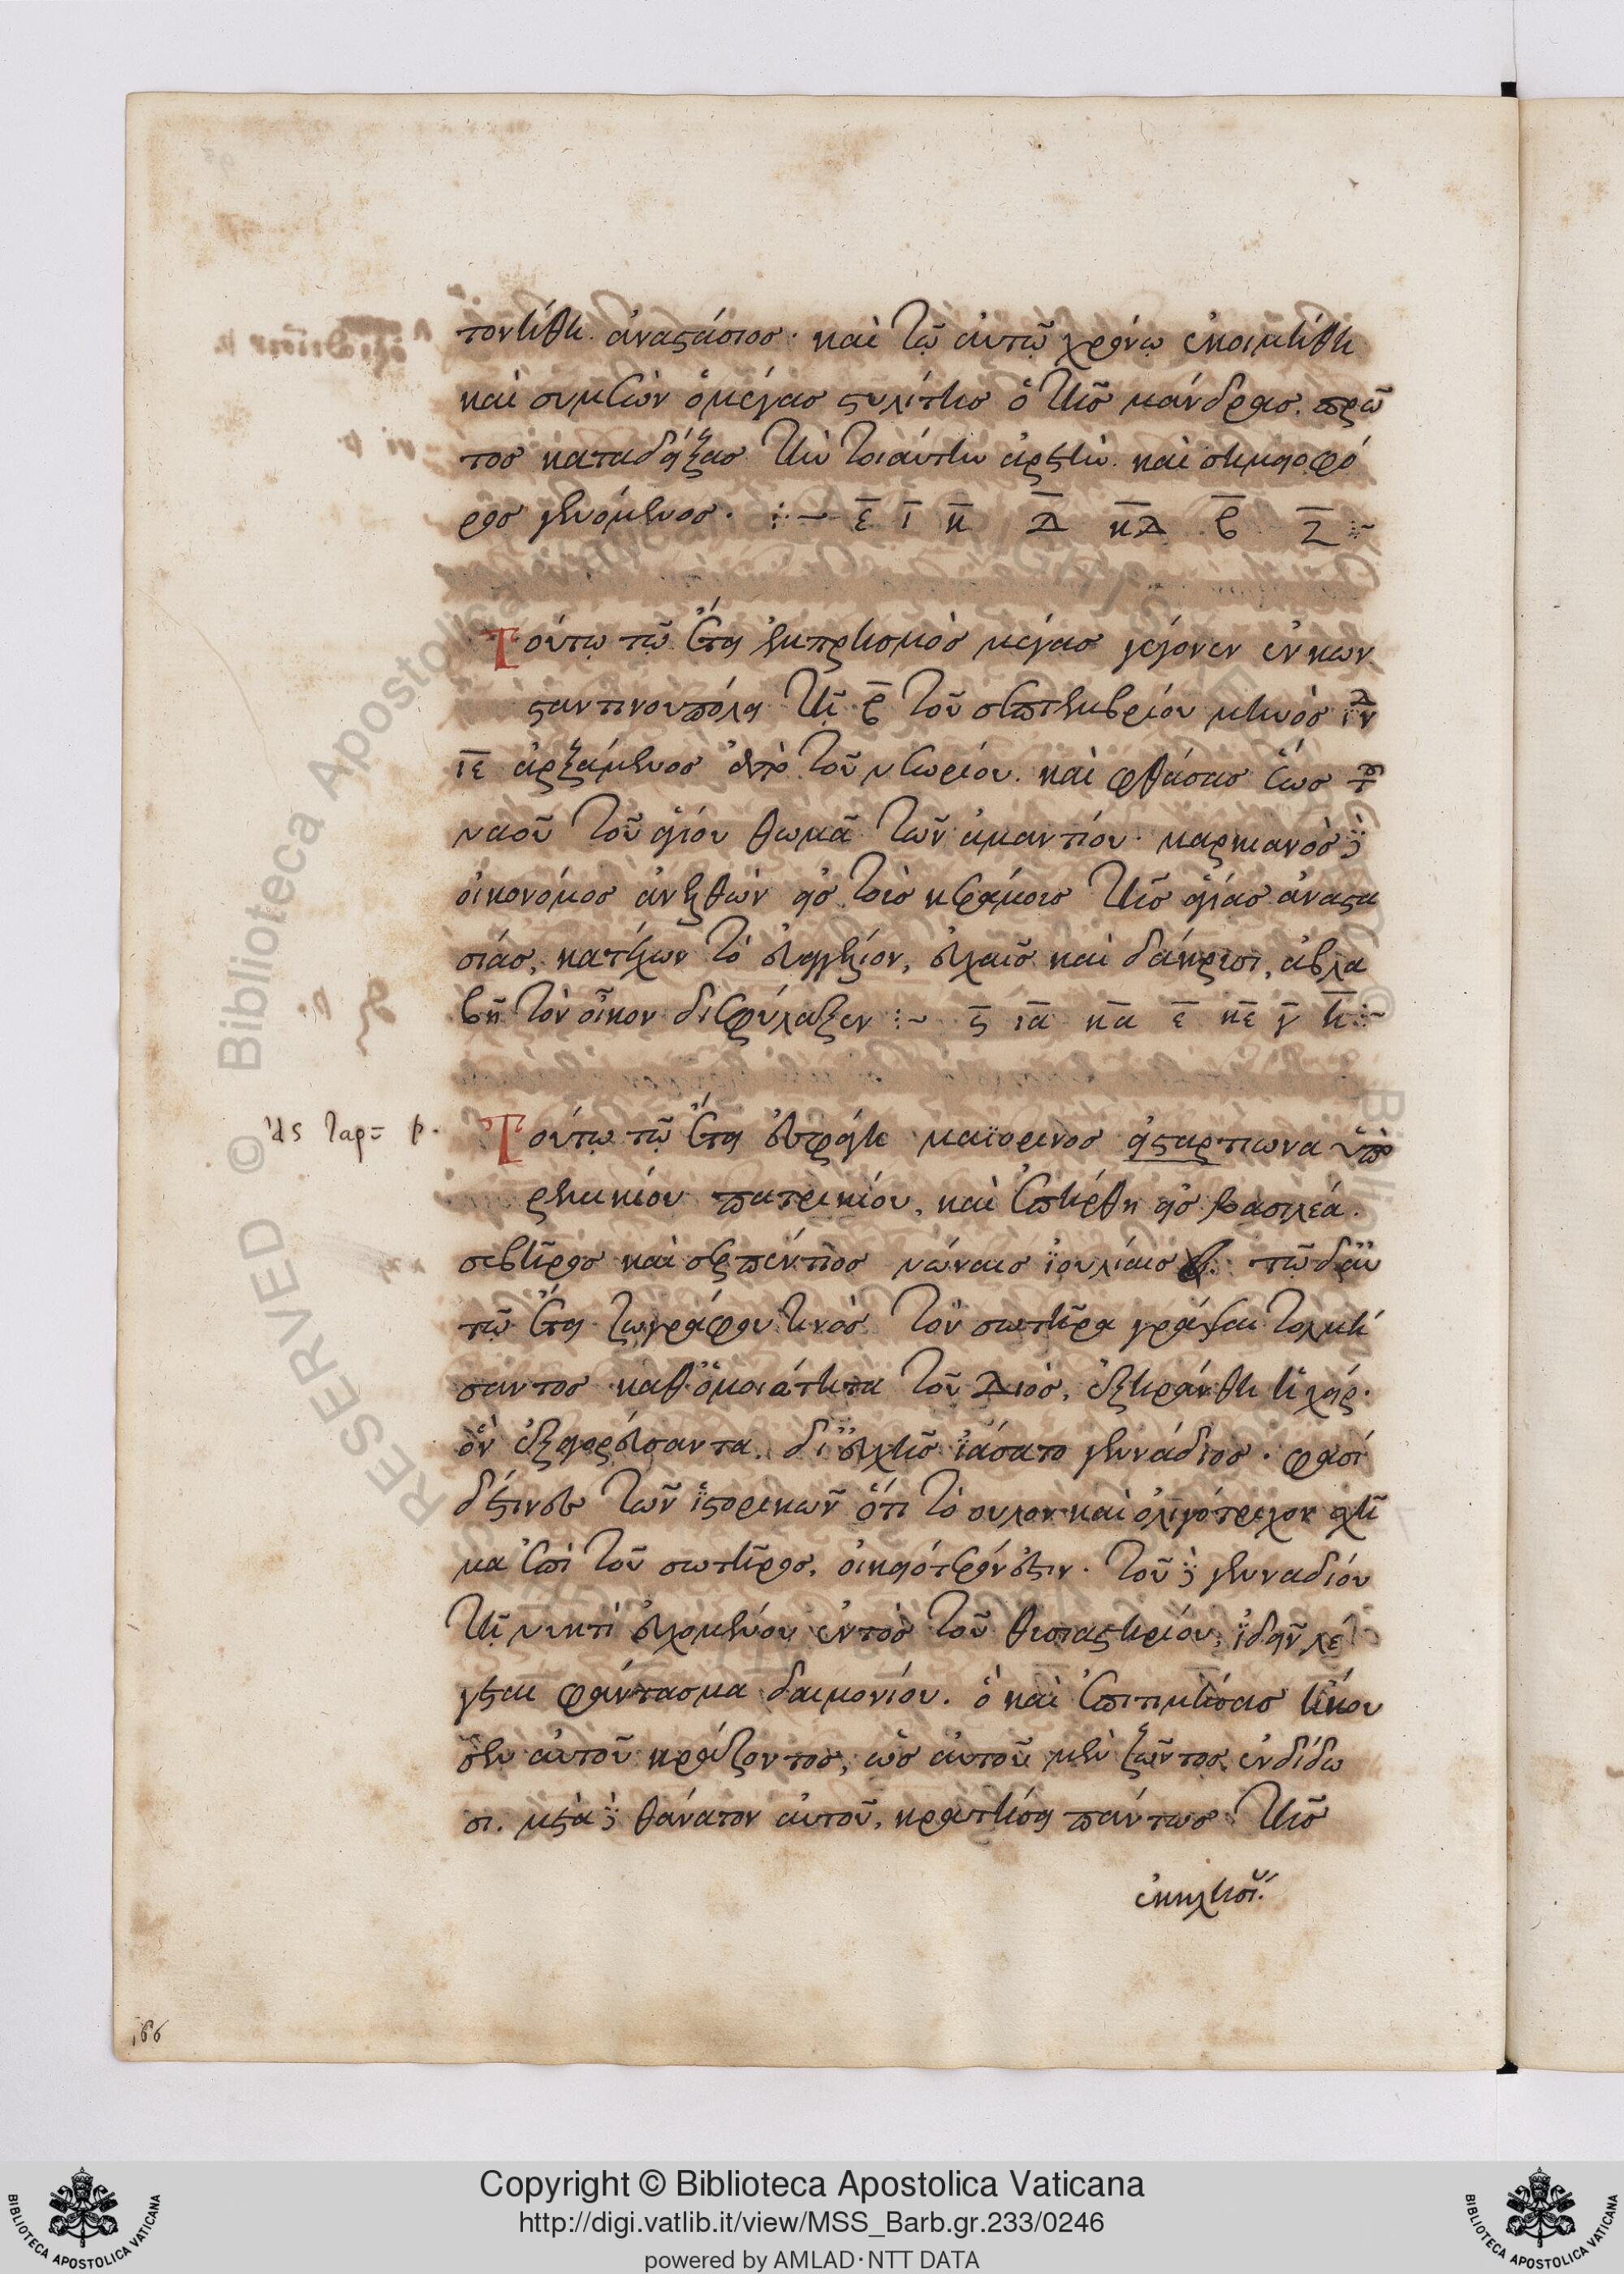 τονήθη ἀναστάσιος· καὶ τῷ αὐτῷ χρόνῳ ἐκοιμήθη
καὶ συμεὼν ὁ μέγας στυλίτης ὁ τῆς μάνδρας. πρῶ
τος καταδείξας τὴν τοιαύτην ἀρετὴν. καὶ σημειοφό
ρος γενόμενος. :~ ε ι κ δ κδ β ζ :~
Τούτῳ τῷ ἔτει ἐμπρησμὸς μέγας γέγονεν ἐν κων
σταντινουπόλει τῇ β τοῦ σεπτεμβρίου μηνὸς ἰνδ
ιε ἀρξάμενος ἀπὸ τοῦ νεωρίου. καὶ φθάσας ἕως τοῦ
ναοῦ τοῦ ἁγίου θωμᾶ τῶν ἀμαντίου· μαρκιανὸς δὲ
οἰκονόμος ἀνελθὼν εἰς τοὶς κεράμοις τῆς ἁγίας ἀναστα
σίας, κατέχων τὸ εὐαγγέλιον, εὐχαῖς καὶ δάκρυσι, ἀβλα
βῆ τὸν οἶκον διεφύλαξεν :~ ϛ ια κα ε κε γ η :~
Τούτῳ τῷ ἔτει ἐσφάγη μαϊορινος εἰς αρτιωνα ὑπὸ
ρεκικίου πατρικίου, καὶ ἐπήρθη εἰς βασιλέα.
σεβῆρος καὶ σερπέντιος νώναις ἰουλίαις τῷ δ' αὐ
τῷ ἔτει ζωγράφου τινὸς τὸν σωτῆρα γράψαι τολμή
σαντος καθ' ὁμοιότητα τοῦ Διός, ἐξηράνθη ἡ χείρ·
ὃν ἐξαγορεύσαντα, δι' εὐχῆς ἰάσατο γεννάδιος. φασὶ
δέ τινες τῶν ἱστορικῶν ὅτι τὸ ουλον καὶ ὀλιγότριχον σχῆ
μα ἐπὶ τοῦ σωτῆρος, οἰκειότερόν ἐστιν. τοῦ δὲ γενναδίου
τῇ νυκτὶ εὐχομένου ἐντὸς τοῦ θυσιαστηρίου, ἰδεῖν λέ
γεται φάντασμα δαιμονίου. ὃ καὶ ἐπιτιμήσας ἤκου
σεν αὐτοῦ κράζοντος, ὡς αὐτοῦ μὲν ζῶντος ἐνδίδω
σι. μετὰ δὲ θάνατον αὐτοῦ, κρατήσει πάντως τῆς
ἐκκλησί.
166
Copyright © Biblioteca Apostolica Vaticana
http://digi.vatlib.it/view/MSS_Barb.gr.233/0246
powered by AMLAD·NTT DATA
BIBLIOTECA APOSTOLICA VATICANA
BIBLIOTECA APOSTOLICA VATICANA